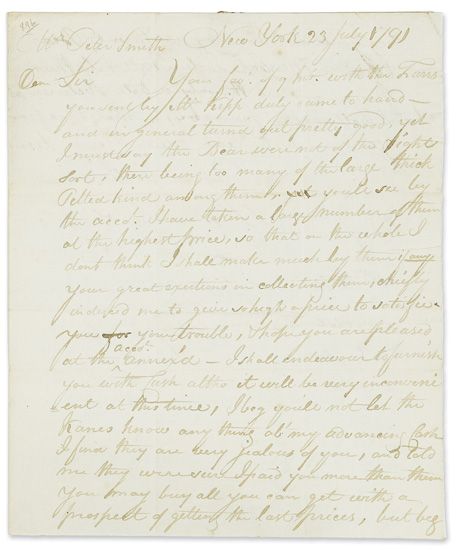 896
Mr. Peter Smith New York 23 July 1791
Dear Sir Your fav. of 9 Inst. with the Furrs
you sent by Mr. Kipp duly came to hand —
and in general turn'd out pretty good, yet
I must say the Bear were not of the right
sort, there being too many of the large thick
Pelted kind among them, you'll see by
the acco. I have taken a large number of them
at the highest price, so that on the whole I
dont think I shall make much by them if any
your great exertions in collecting them, chiefly
induced me to give so high a price to satisfie
you for your trouble, I hope you are pleased
at the acco. annex'd — I shall endeavour to furnish
you with Cash altho it will be very inconveni
ent at this time, I beg you'll not let the
Kanes know any thing ab't my advancing Cash
I find they are very jealous of you, and told
me they were sure I paid you more than them
You may buy all you can get with a
prospect of getting the last prices, but beg